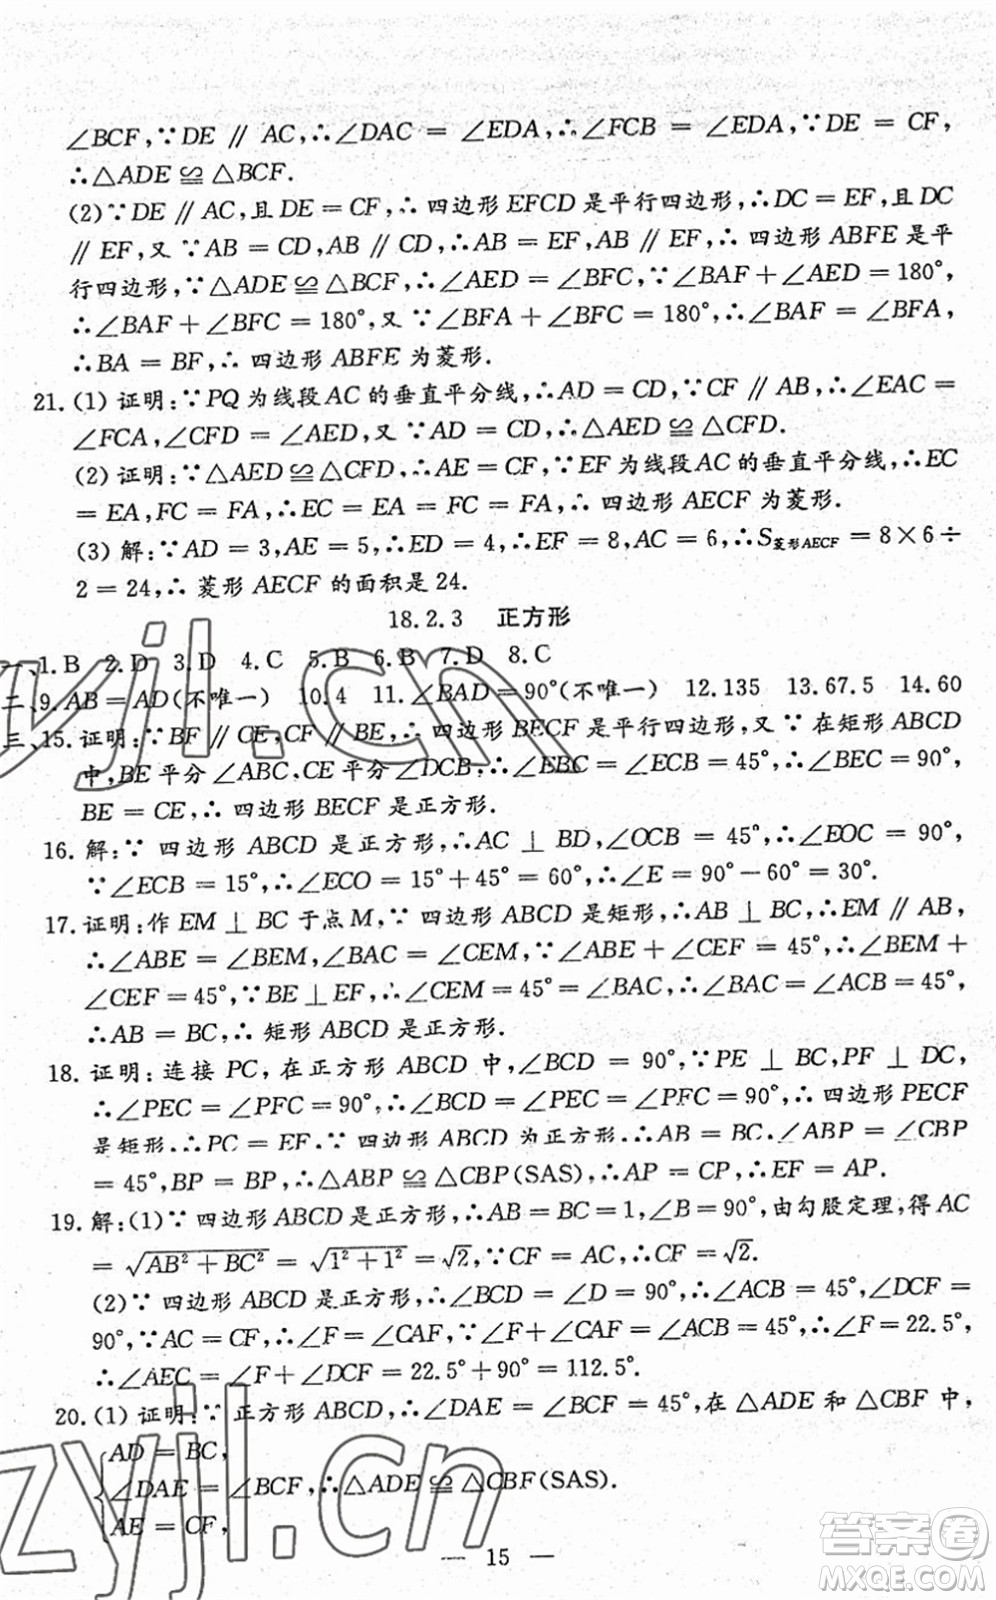 ∠BCF,∵DE∥AC,∴∠DAC=∠EDA,∴∠FCB=∠EDA,∵DE=CF,
∴△ADE≌△BCF.
(2)∵DE∥AC,且DE=CF,∴四边形EFCD是平行四边形,∴DC=EF,且DC
∥EF,又∵AB=CD,AB∥CD,∴AB=EF,AB∥EF,∴四边形ABFE是平
行四边形,∵△ADE≌△BCF,∴∠AED=∠BFC,∵∠BAF+∠AED=180°,
∴∠BAF+∠BFC=180°,又∵∠BFA+∠BFC=180°,∴∠BAF=∠BFA,
∴BA=BF,∴四边形ABFE为菱形.
21.(1)证明:∵PQ为线段AC的垂直平分线,∴AD=CD,∵CF∥AB,∴∠EAC=
∠FCA,∠CFD=∠AED,又∵AD=CD,∴△AED≌△CFD.
(2)证明:∵△AED≌△CFD,∴AE=CF,∵EF为线段AC的垂直平分线,∴EC
=EA,FC=FA,∴EC=EA=FC=FA,∴四边形AECF为菱形.
(3)解:∵AD=3,AE=5,∴ED=4,∴EF=8,AC=6,∴S菱形AECF=8×6÷
2=24,∴菱形AECF的面积是24.
18.2.3 正方形
一、1.B 2.D 3.D 4.C 5.B 6.B 7.D 8.C
二、9.AB=AD(不唯一) 10.4 11.∠BAD=90°(不唯一) 12.135 13.67.5 14.60
三、15.证明:∵BF∥CE,CF∥BE,∴四边形BECF是平行四边形,又∵在矩形ABCD
中,BE平分∠ABC,CE平分∠DCB,∴∠EBC=∠ECB=45°,∴∠BEC=90°,
BE=CE,∴四边形BECF是正方形.
16.解:∵四边形ABCD是正方形,∴AC⊥BD,∠OCB=45°,∴∠EOC=90°,
∵∠ECB=15°,∴∠ECO=15°+45°=60°,∴∠E=90°-60°=30°.
17.证明:作EM⊥BC于点M,∵四边形ABCD是矩形,∴AB⊥BC,∴EM∥AB,
∴∠ABE=∠BEM,∠BAC=∠CEM,∵∠ABE+∠CEF=45°,∴∠BEM+
∠CEF=45°,∵BE⊥EF,∴∠CEM=45°=∠BAC,∴∠BAC=∠ACB=45°,
∴AB=BC,∴矩形ABCD是正方形.
18.证明:连接PC,在正方形ABCD中,∠BCD=90°,∵PE⊥BC,PF⊥DC,
∴∠PEC=∠PFC=90°,∴∠BCD=∠PEC=∠PFC=90°,∴四边形PECF
是矩形,∴PC=EF.∵四边形ABCD为正方形.∴AB=BC.∠ABP=∠CBP
=45°,BP=BP,∴△ABP≌△CBP(SAS),∴AP=CP,∴EF=AP.
19.解:(1)∵四边形ABCD是正方形,∴AB=BC=1,∠B=90°,由勾股定理,得AC
=√(AB²+BC²)=√(1²+1²)=√2,∵CF=AC,∴CF=√2.
(2)∵四边形ABCD是正方形,∴∠BCD=∠D=90°,∠ACB=45°,∠DCF=
90°,∵AC=CF,∴∠F=∠CAF,∵∠F+∠CAF=∠ACB=45°,∴∠F=22.5°,
∴∠AEC=∠F+∠DCF=22.5°+90°=112.5°.
20.(1)证明:∵正方形ABCD,∴∠DAE=∠BCF=45°,在△ADE和△CBF中,
AD=BC,
∠DAE=∠BCF,∴△ADE≌△CBF(SAS).
AE=CF,
— 15 —
zyjl.cn
zyjl.cn
答案卷
MXQE.COM